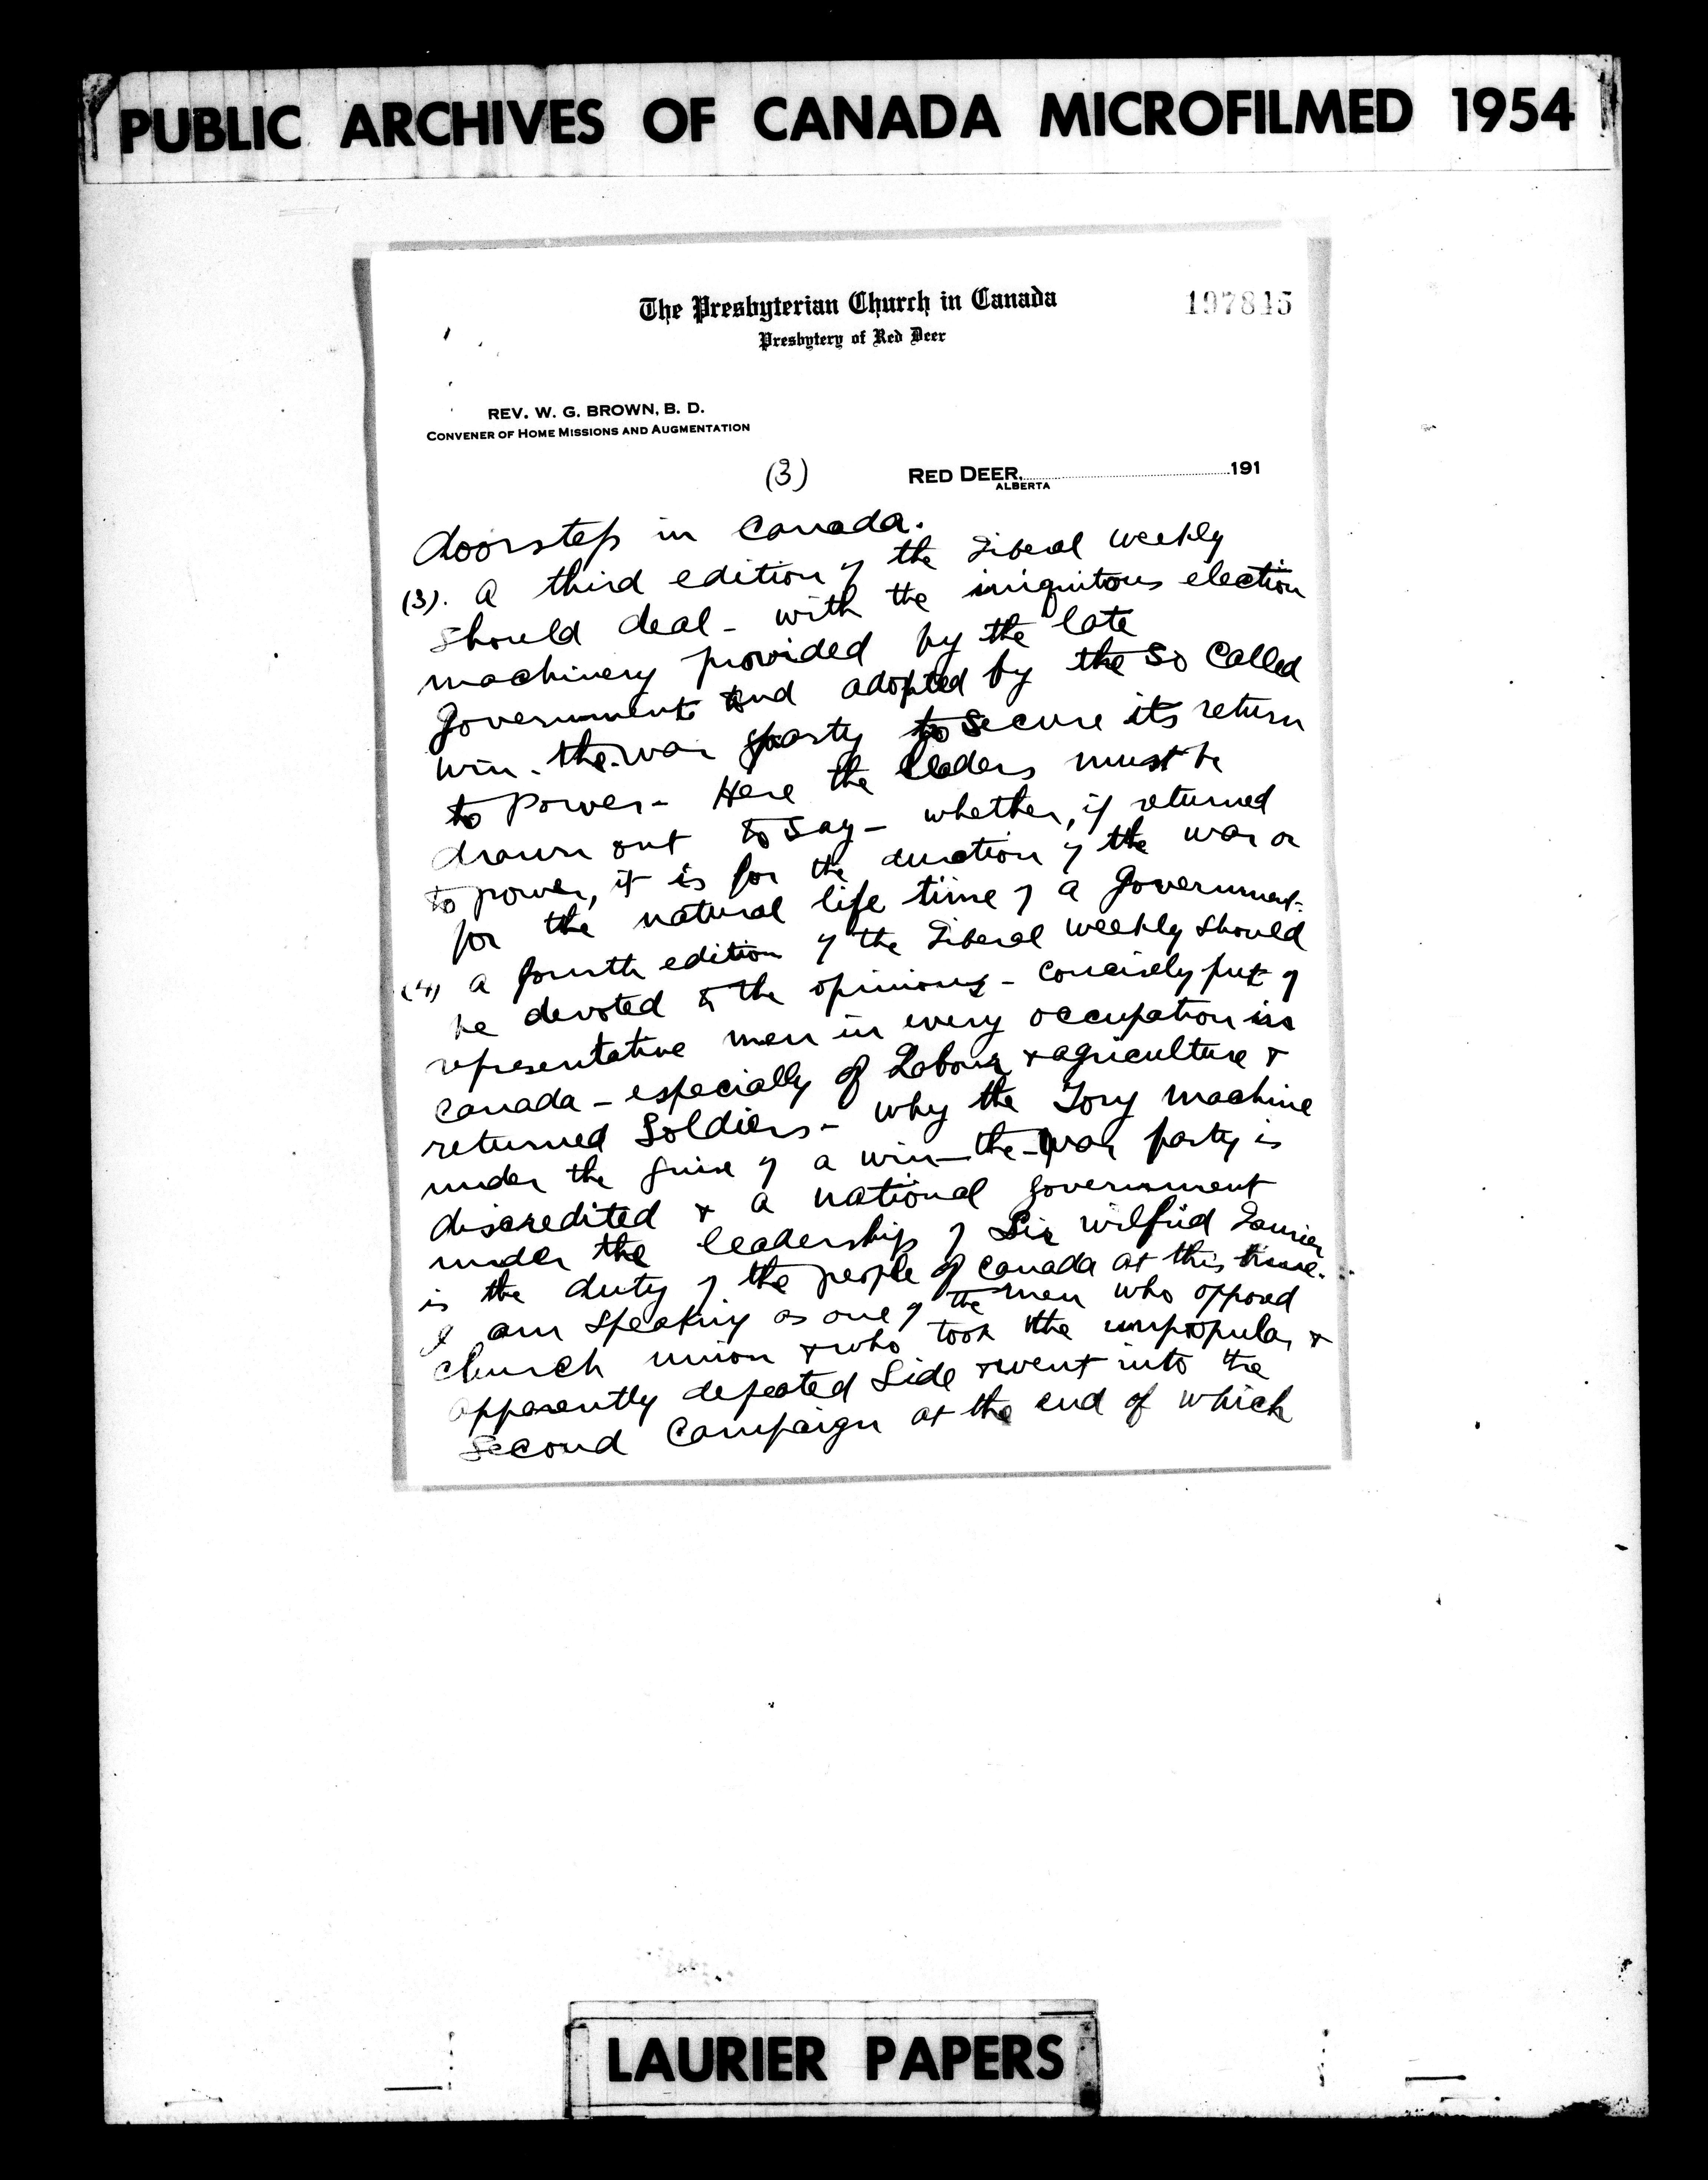 PUBLIC ARCHIVES OF CANADA MICROFILMED 1954
The Presbyterian Church in Canada
197845
Presbytery of Red Deer
REV. W. G. BROWN, B. D.
CONVENER OF HOME MISSIONS AND AUGMENTATION
(3) RED DEER, 191
ALBERTA
doorstep in Canada.
(3). A third edition of the Liberal weekly
should deal - with the iniquitous election
machinery provided by the late
Government and adopted by the so called
win-the-war party to secure its return
to power - Here the leaders must be
drawn out to say - whether, if returned
to power, it is for the duration of the war or
for the natural life time of a Government.
(4) A fourth edition of the Liberal weekly should
be devoted to the opinions - concisely put of
representative men in every occupation in
Canada - especially of Labour & agriculture &
returned Soldiers - why the Tory machine
under the guise of a win-the-war party is
discredited & a national government
under the leadership of Sir Wilfrid Laurier
is the duty of the people of Canada at this time.
I am speaking as one of the men who opposed
church union & who took the unpopular &
apparently defeated side & went into the
second Campaign at the end of which
LAURIER PAPERS